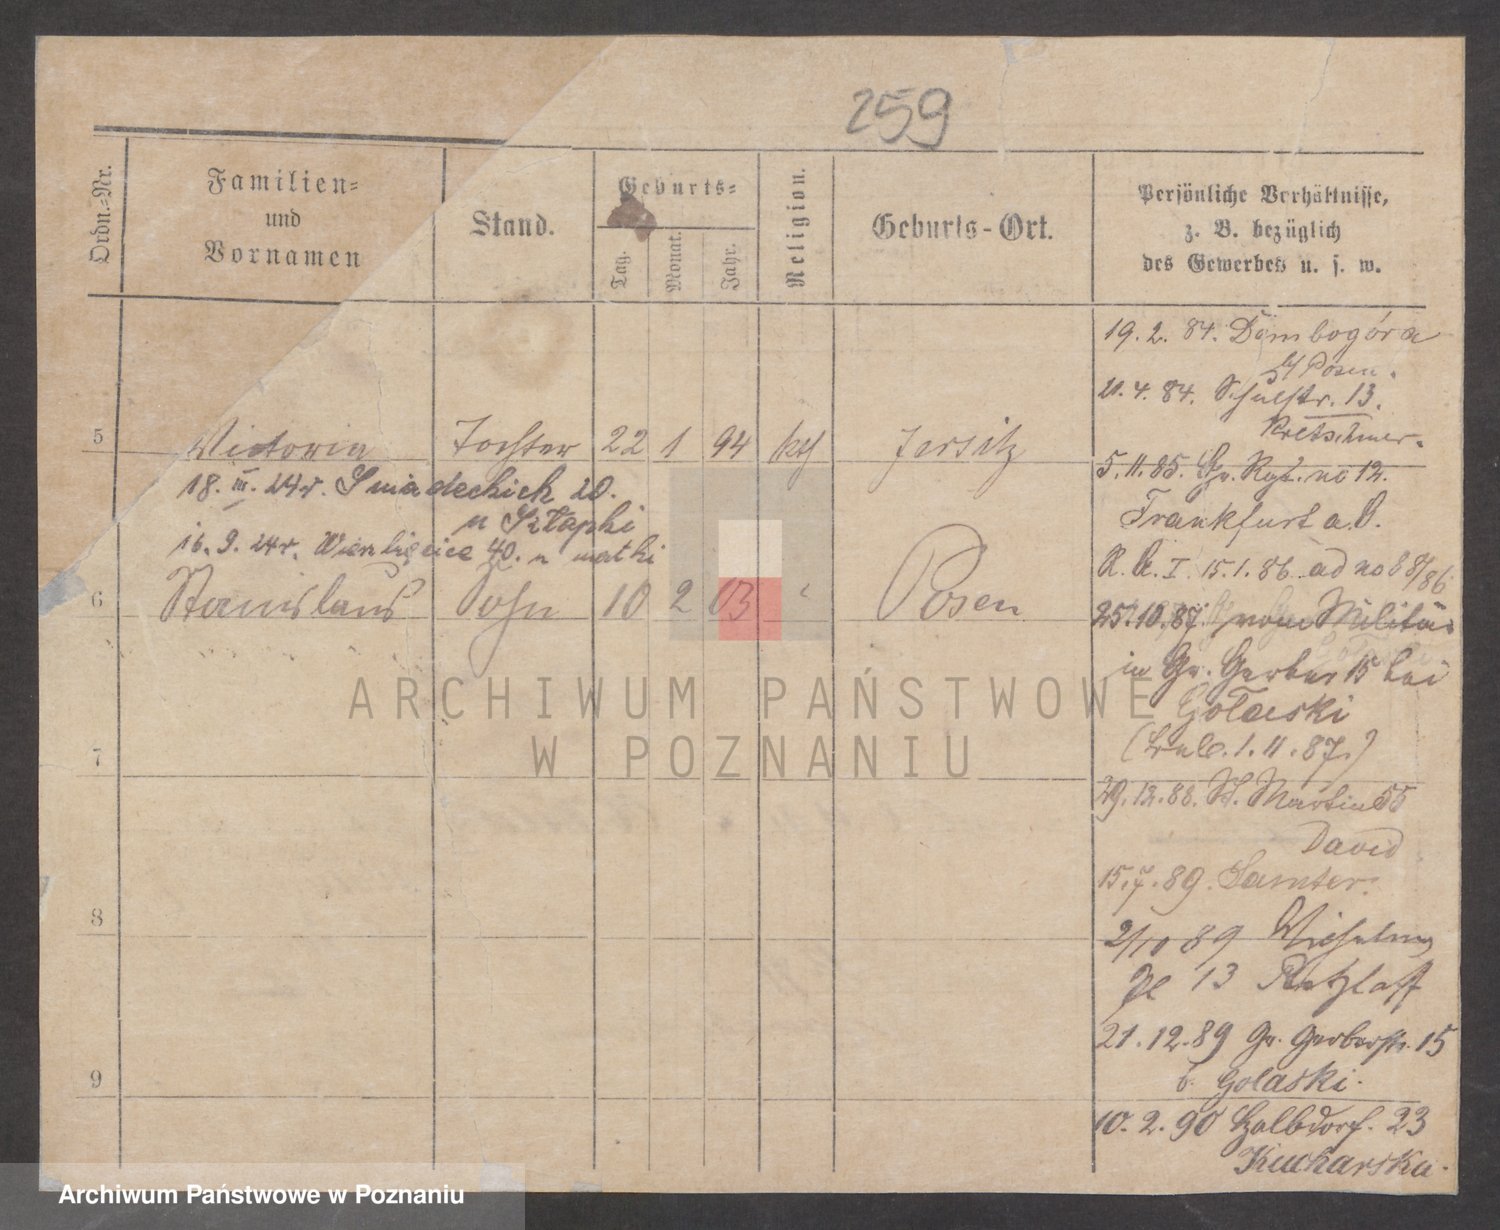 259
Ordn.-Nr.
Familien-
und
Vornamen
Stand.
Geburts-
Tag.
Monat.
Jahr.
Religion.
Geburts-Ort.
Persönliche Verhältnisse,
z. B. bezüglich
des Gewerbes u. s. w.
19. 2. 84. Dombogóra
b/ Posen.
21. 4. 84. Schulstr. 13.
Kretschmer.
5 Victoria Tochter 22 1 94 kth Jersitz
5. 11. 85. Gr. Rgt. no 12.
18. III. 24 r. Sniadeckich 20.
u Szłapki
Frankfurt a.O.
16. 9. 24 r. Wierzbięcice 40. u matki
R. A. I. 15. 1. 86 ad no 68/86
6 Stanislaus Sohn 10 2 03 " Posen
25. 10. 87. vom Militär
in Gr. Gerber 15 bei
Gołaski
ARCHIWUM PAŃSTWOWE
W POZNANIU
7
1. 11. 87.)
29. 12. 88. St. Martin 55
David
15. 7. 89. Samter.
8
2/10 89 Wilhelm
Pl 13 Retzlaff
21. 12. 89 Gr. Gerberstr. 15
b. Golaski.
9
10. 2. 90 Halbdorf. 23
Kucharska.
Archiwum Państwowe w Poznaniu